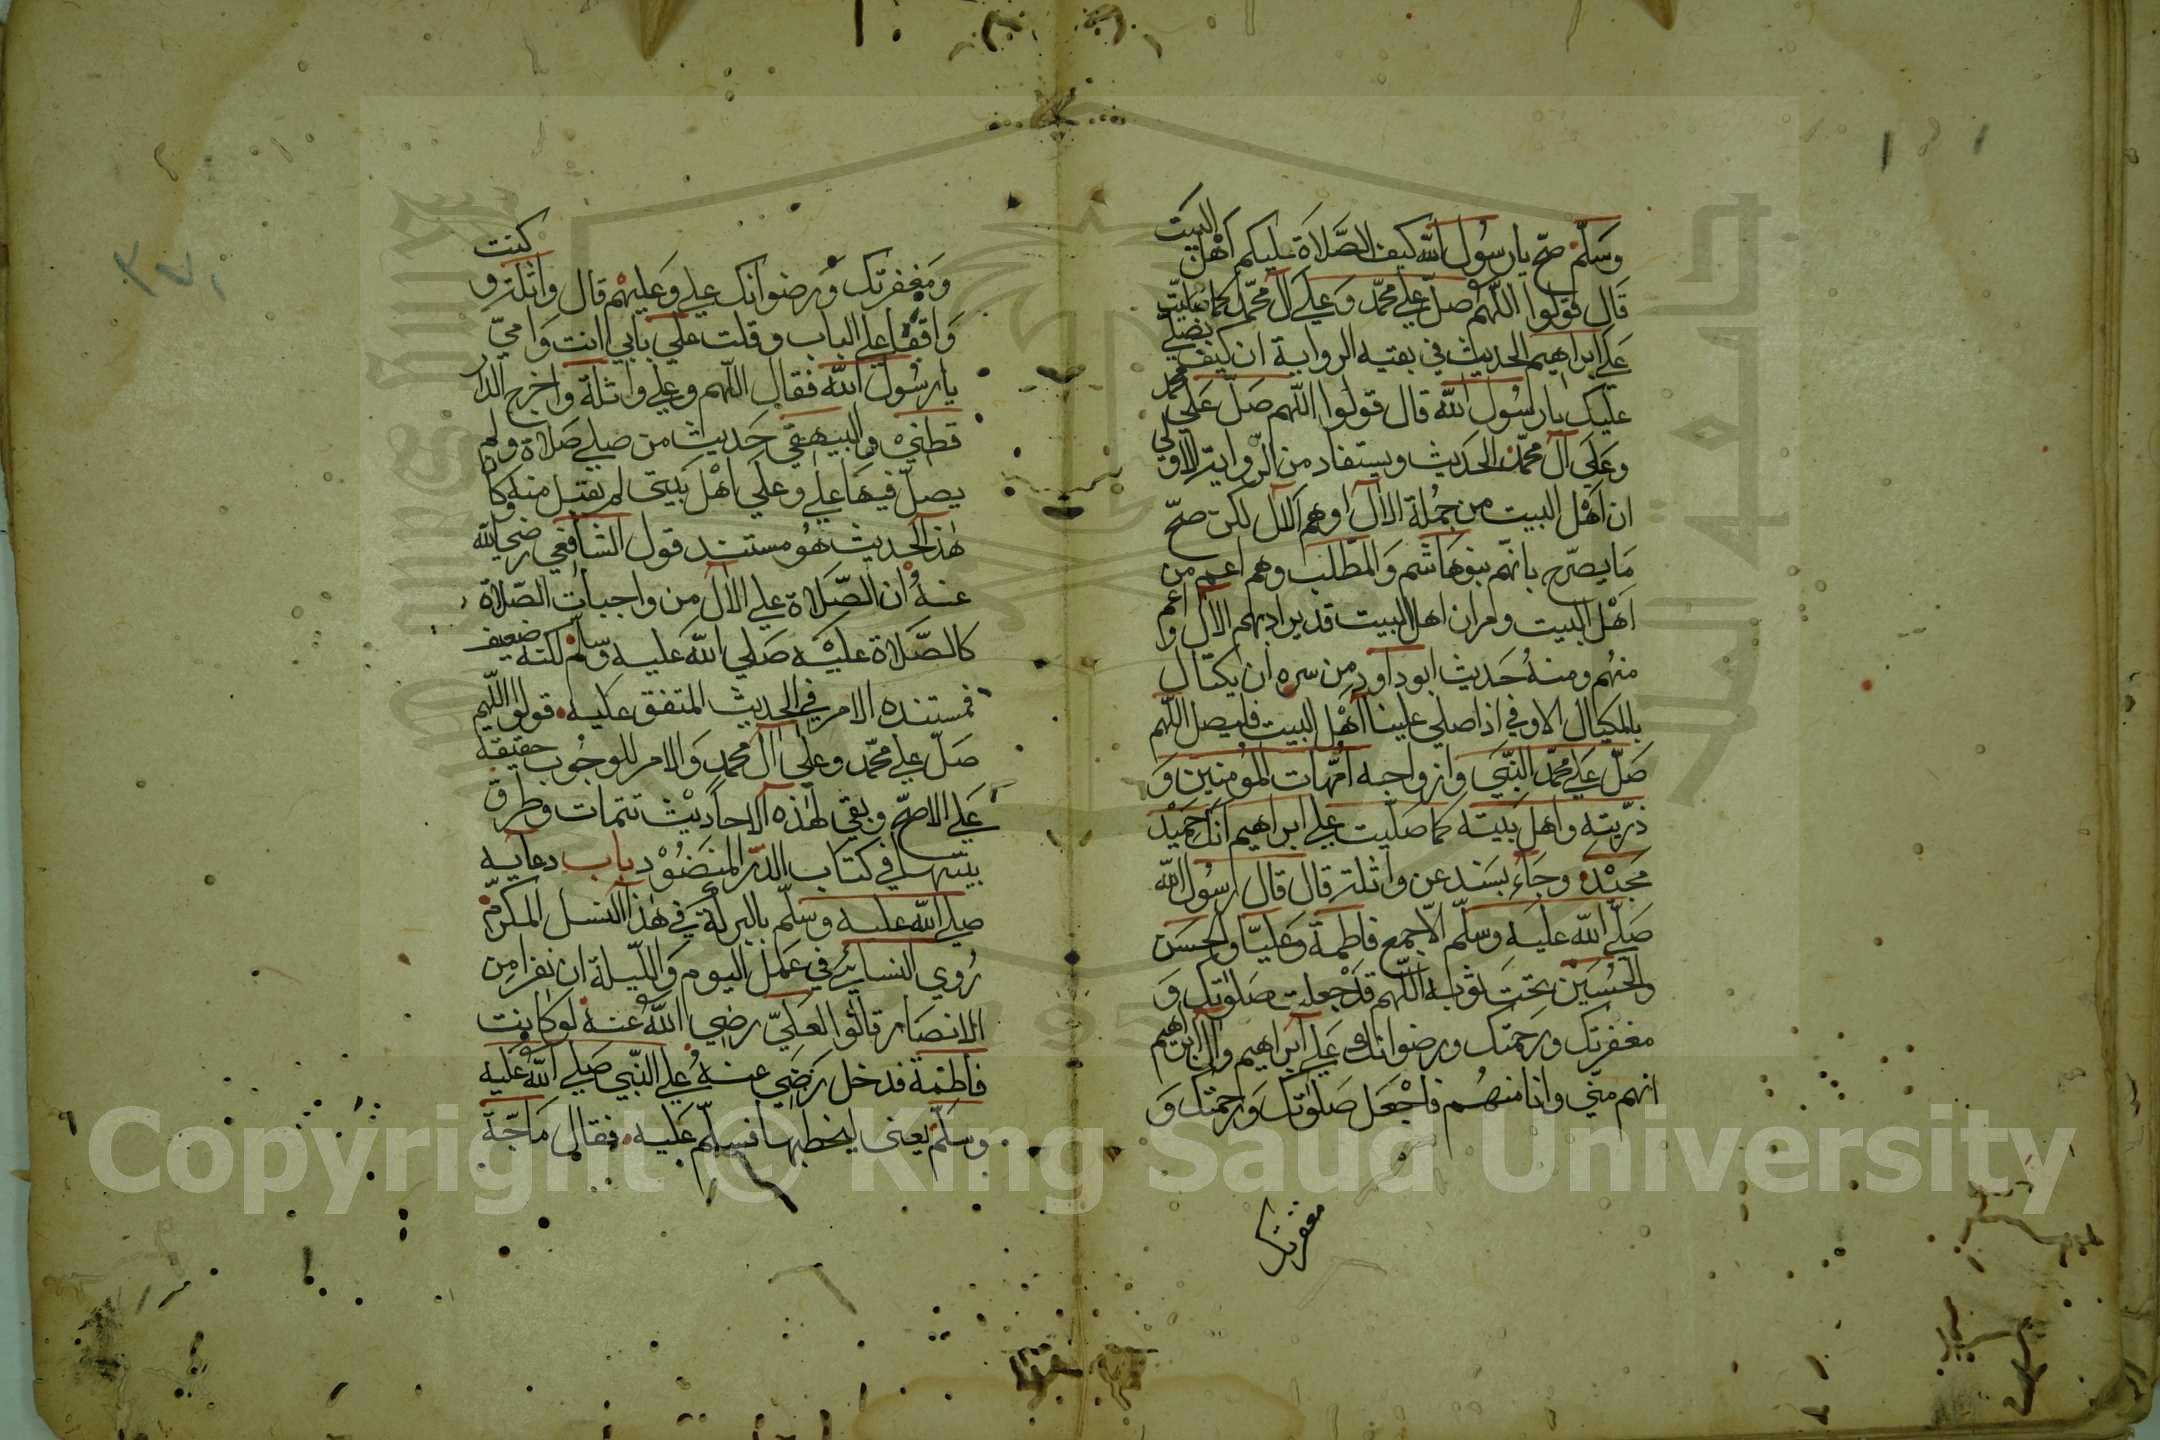 وَسَلَّمَ صحّ يا رسُول الله كيف الصَّلاة عليكم اَهْل البيت
قَال قولوا اللّهم صلّ علي محمّد وَعلي آل محمّد كما صَليت
عَلي ابراهيم الحديث في بقيه الرواية ان كيف نصلي
عليك يا رسُول الله قال قولوا اللّهم صَلّ عَلي محمد
وعَلي آل محمّد الحَديث ويستفاد من الرّواية الاولي
ان اَهْل البيت من جُملة الاٰل او هم الاٰل لكن صحّ
مَا يصرّح بانّهم بنو هَاشم وَالمطّلب وهم اعم من
اَهْل البيت ومر ان اهل البيت قد يراد بهم الاٰل واعم
منهُم ومنهُ حَديث ابو داود من سره ان يكتال
بالمكيال الاوفي اذا صلي علينا اَهْل البيت فليصل اللّهم
صَلّ عَلي محمّد النّبَي وازواجه اُمّهات المُومنين وَ
ذرّيته واهل بَيته كما صَلّيت عَلي ابراهيم انّك حَميْد
مَجيْد وجَاء بسَند عن واثلة قال قال رسُول الله
صَلّي الله عليَه وسَلّم لمّا جمع فاطمَة وَعَليّا والحسَن
والحُسَيْن تحَت ثوبه اللّهم قَد جعلت صَلوٰتك وَ
مغفرتك ورَحمتك ورضوانك عَلي ابراهيم واٰل ابراهيم
انهم منّي وانا منهُم فاجْعَل صَلوٰتك وَرَحمتك وَ
مغفرتك
وَمَغفرتك وَرضوانك علي وَعَليهْم قال واثلة وكنت
وَاقفا علي الباب وقلت عَلي بابي اانت وَامّي
يا رسُول الله فقال اللهم وعلي واثلة واخرج الدار
قطني والبيهقي حَديث من صلي صَلاة ولم
يصلّ فيهَا علي وعَلي اَهْل بَيتي لم يقبل منه وكان
هٰذا الحَديث هُو مستند قول الشافعي رضي الله
عنهُ ان الصَّلاة علي الاٰل من واجبات الصّلاة
كالصَّلاة عليْه صَلي الله عَليه وسلم لكنّه ضعيف
فمستنده الامر في الحَديث المتفق عَليه قولوا اللّهم
صَلّ علي محمّد وعلي اٰل محمّد وَالامر للوجُوب حقيقة
عَلي الاصحّ وبقي لهٰذه الاحاديْث تتمات وطرق
بينتها في كتاب الدّر المنضُوْد باب دعايه
صلي الله عليه وسلّم بالبركة في هٰذا النسل المكرّم
رُوي النسائي في عَمَل اليوم وَاللّيلة ان نفرا من
الانصَار قالوُا لعَليّ رضي الله عنهُ لو كانت
فاطمة فدخل رَضي عنهُ علي النّبي صَلي الله عَليه
وسَلّم يعني ليخطبها فسلّم عَليه فقال مَا حَاجَة